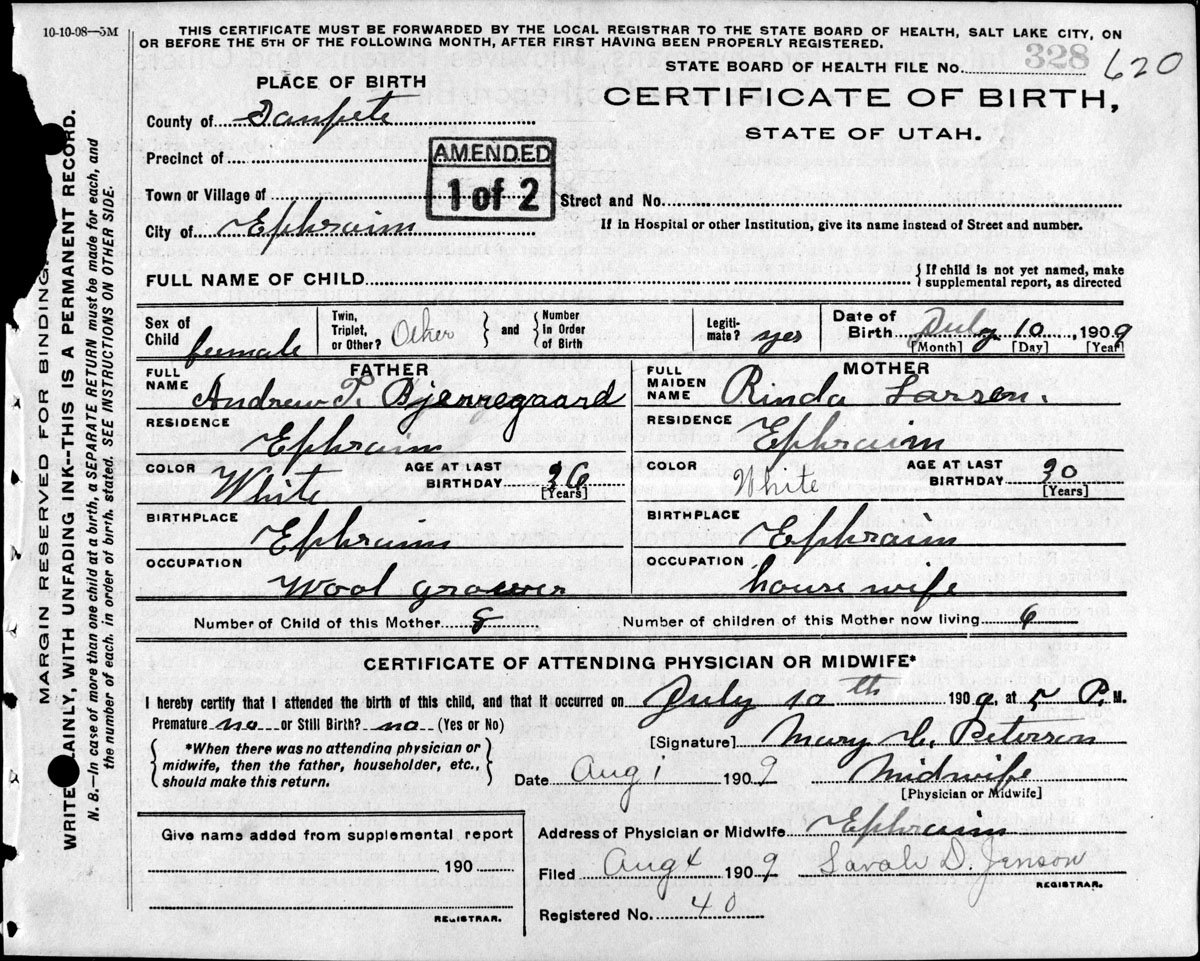 10-10-08—5M
THIS CERTIFICATE MUST BE FORWARDED BY THE LOCAL REGISTRAR TO THE STATE BOARD OF HEALTH, SALT LAKE CITY, ON
OR BEFORE THE 5TH OF THE FOLLOWING MONTH, AFTER FIRST HAVING BEEN PROPERLY REGISTERED.
STATE BOARD OF HEALTH FILE No. 328 620
PLACE OF BIRTH
CERTIFICATE OF BIRTH,
STATE OF UTAH.
County of Sanpete
Precinct of
AMENDED
1 of 2
Town or Village of
Street and No.
City of Ephraim
If in Hospital or other Institution, give its name instead of Street and number.
FULL NAME OF CHILD
{If child is not yet named, make
supplemental report, as directed
Sex of Child female
Twin, Triplet, or Other? Other } and { Number In Order of Birth
Legitimate? yes
Date of Birth July 10, 1909
[Month] [Day] [Year]
FATHER
FULL NAME Andrew P. Bjerregaard
RESIDENCE Ephraim
COLOR White AGE AT LAST BIRTHDAY 36
[Years]
BIRTHPLACE Ephraim
OCCUPATION Wool grower
MOTHER
FULL MAIDEN NAME Rinda Larsen.
RESIDENCE Ephraim
COLOR White AGE AT LAST BIRTHDAY 30
[Years]
BIRTHPLACE Ephraim
OCCUPATION house wife
Number of Child of this Mother 8 Number of children of this Mother now living 6
CERTIFICATE OF ATTENDING PHYSICIAN OR MIDWIFE*
I hereby certify that I attended the birth of this child, and that it occurred on July 10th 1909, at 5 P. M.
Premature no or Still Birth? no (Yes or No)
{ *When there was no attending physician or
midwife, then the father, householder, etc.,
should make this return. }
[Signature] Mary C. Peterson
Date Aug 1 1909 Midwife
[Physician or Midwife]
Give name added from supplemental report
190
REGISTRAR.
Address of Physician or Midwife Ephraim
Filed Aug 4 1909 Sarah D. Jenson
REGISTRAR.
Registered No. 40
MARGIN RESERVED FOR BINDING.
WRITE LAINLY, WITH UNFADING INK--THIS IS A PERMANENT RECORD.
N. B.—In case of more than one child at a birth, a SEPARATE RETURN must be made for each, and
the number of each. in order of birth. stated. SEE INSTRUCTIONS ON OTHER SIDE.